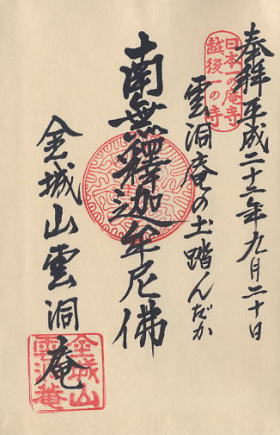 奉拝 平成二十三年九月二十日
日本一の庵寺
越後一の寺
雲洞庵の土踏んだか
南無釋迦牟尼佛
金城山雲洞庵
金城山
雲洞菴